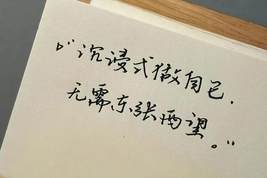 “沉浸式做自己.
无需东张西望。”